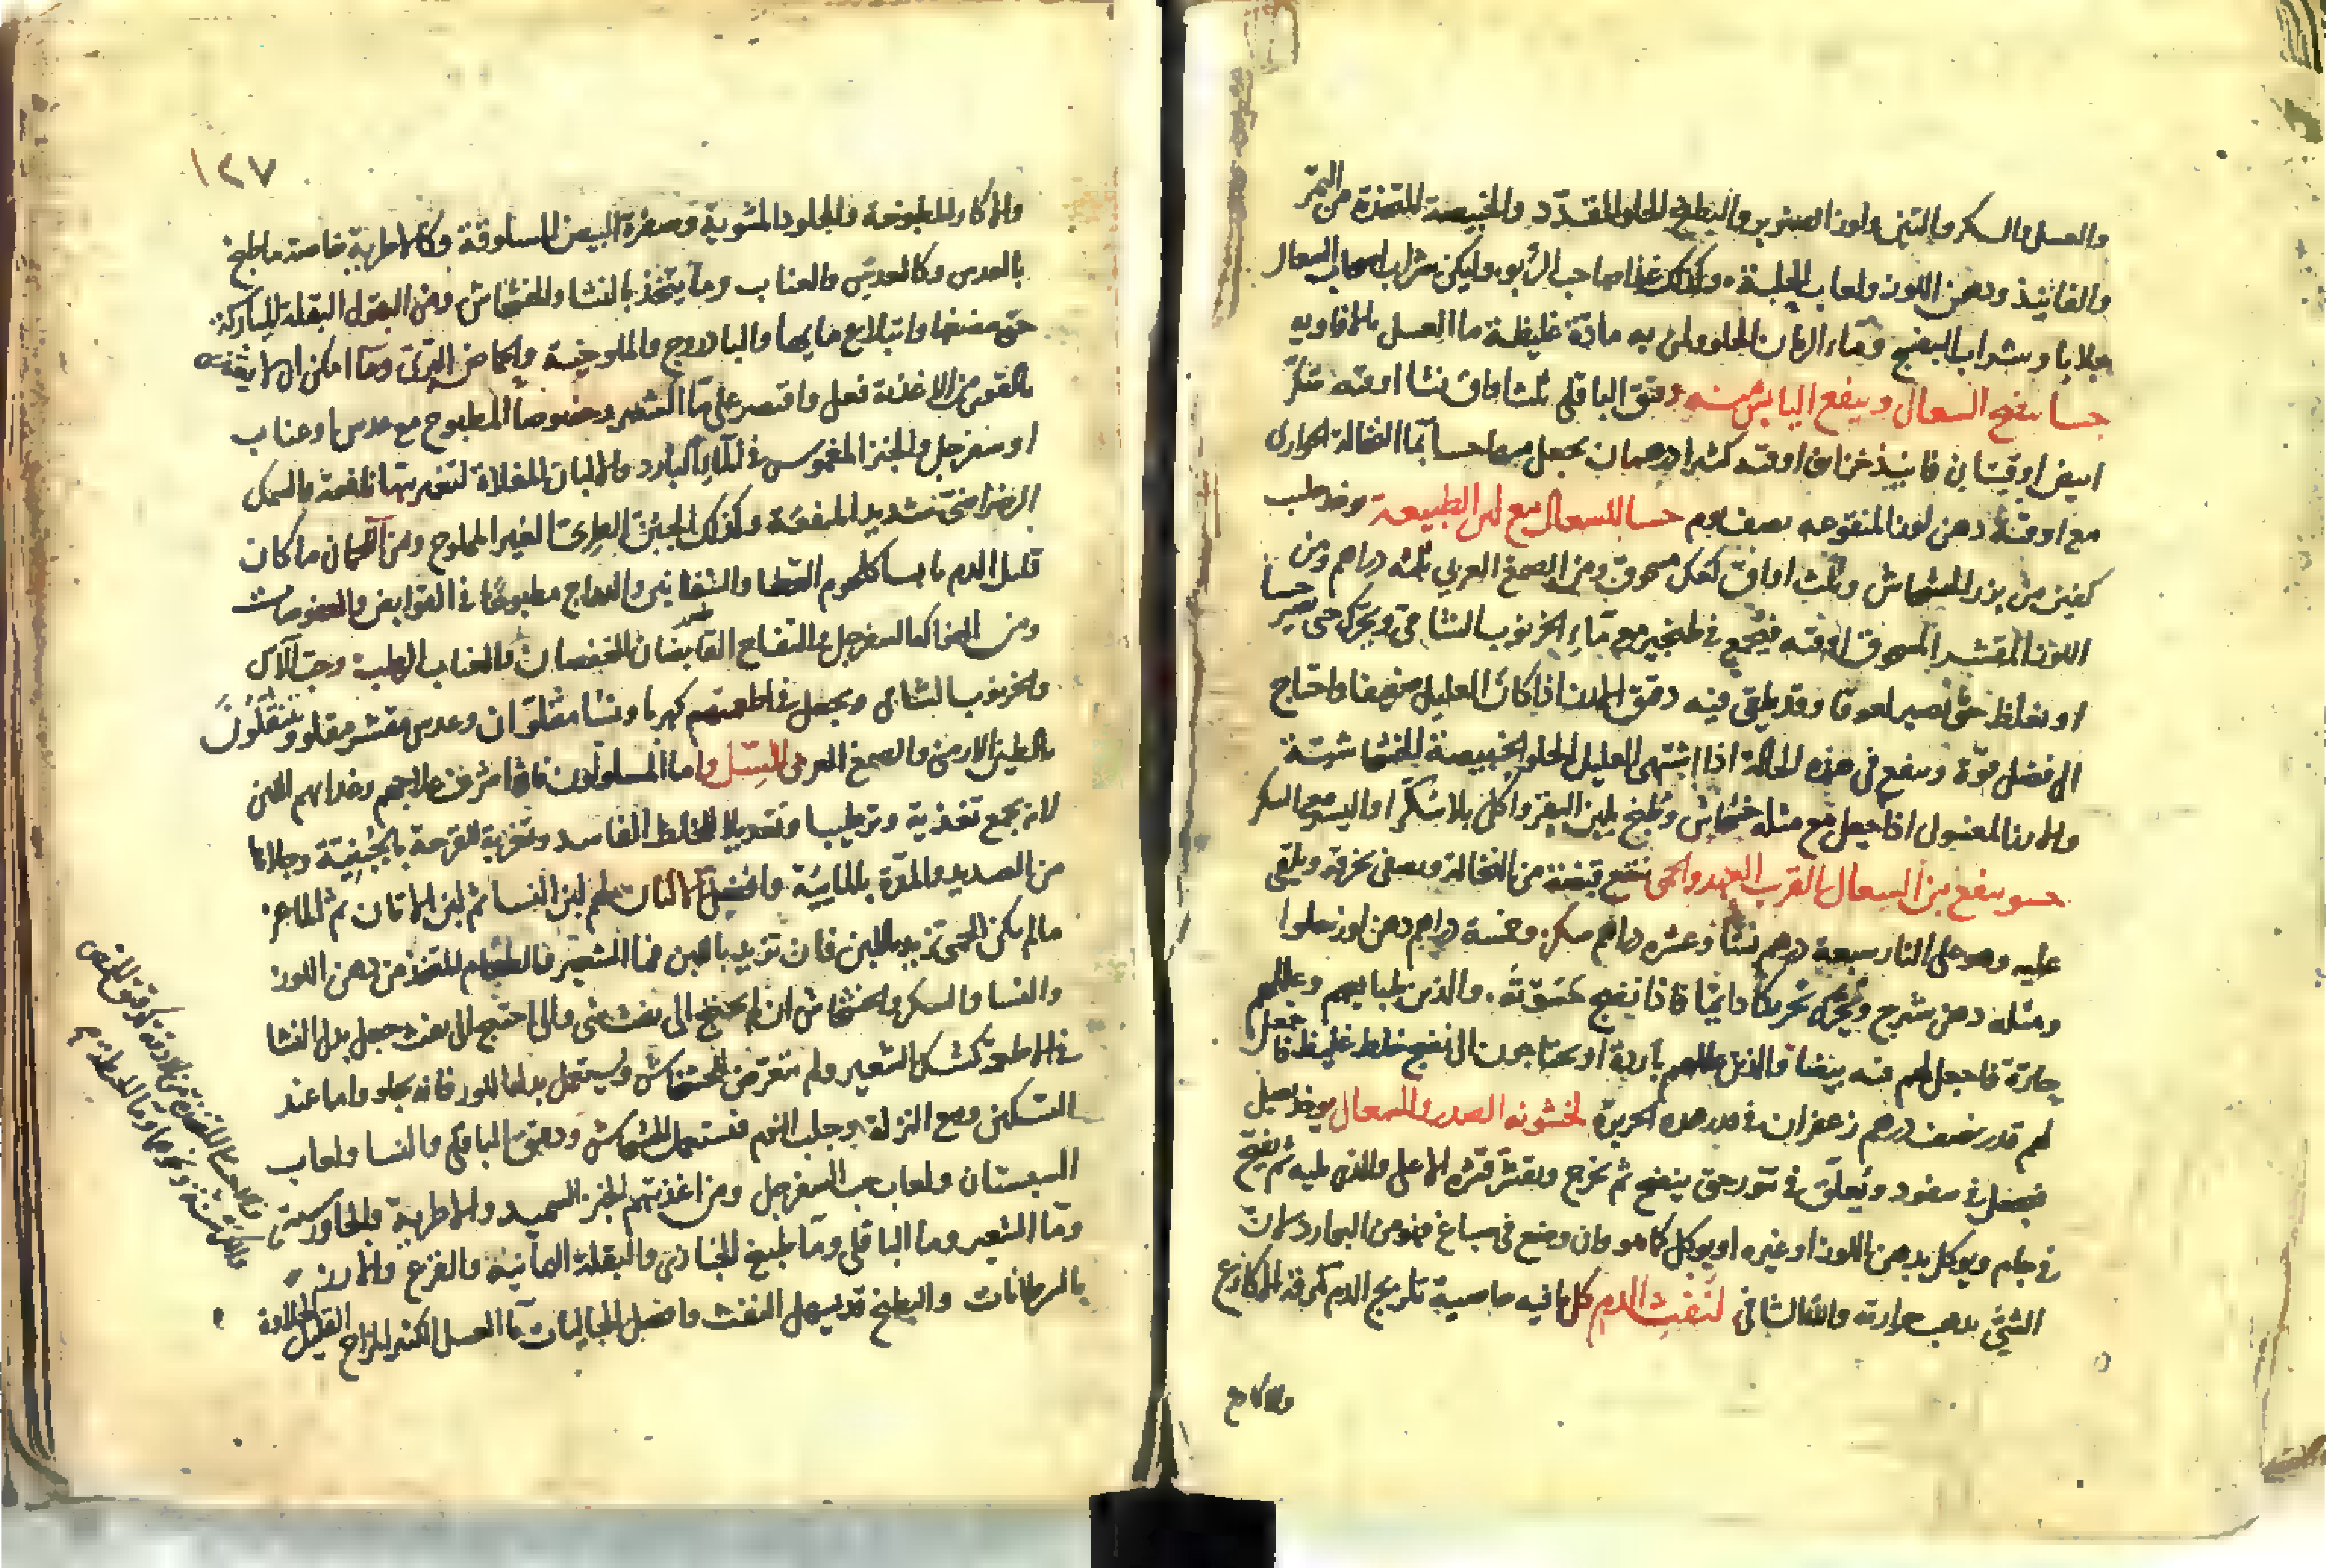 والعسل والسكر والتين ولوز الصنوبر والبطيخ الحلو المقدد والخبيصة المتخذة من التمر
والفانيذ ودهن اللوز ولعاب الحلبة وكذلك غذا صاحب الربو وليكن شراب اصحاب السعال
جلابا وشراب البنفسج وماء الرمان الحلو ولمن به مادة غليظة ما العسل بالافاويه
حسا ينضج السعال وينفع اليابس منه دقيق الباقلي ثلث اواق نشا اوقيه سكر
ابيض اوقيتان فانيذ خزاين اوقيه كثيرا درهمان يجعل منها حسا بما النخالة الحوارى
مع اوقية دهن لوز المنقوعه نصف يوم حسا للسعال مع لين الطبيعه وخذ
كفين من بزر الخشخاش وثلث اواق كعك مسحوق ومن الصمغ العربي ثلثه دراهم ومن
اللوز المقشر المسحوق اوقيه فيجمع في طنجير مع ماء الخرنوب الشامي ويحرك حتى يصير حسا
او يغلظ حتى يصير لعوقا وقد يلقى فيه دقيق الارز اذا كان العليل ضعيفا واحتاج
الى فضل قوة وينفع في هذه الحالة اذا اشتهى العليل الحلو الخبيصة الخشخاشية
والارز المغسول اذا جعل مع مثله خشخاش وطبخ بلبن البقر واكل بلا سكر او اليسير من السكر
حسو ينفع من السعال القريب العهد والحمى تنقع قبضة من النخالة ويصفى بخرقه ويلقى
عليه وهو على النار سبعة درهم نشا وعشره دراهم سكر وخمسة دراهم دهن لوز حلوا
ومثله دهن شيرج ويحرك تحريكا دائما فاذا نضج يحسونه والذين طبايعهم وعللهم
حارة فاجعل لهم فيه بيضا والذين عللهم باردة او يحتاجون الى نضج خلط غليظ فاجعل
لهم قدر نصف درهم زعفران في مده الحريرة لخشونه الصدر والسعال يوخذ بصل
فيجعل في سفود ويعلق في تنور حتى ينضج ثم يخرج ويقشر قشره الاعلى والذى يليه ثم يفتح
في جام ويوكل بدهن اللوز او غيره او يوكل كما هو وان وضع في صباغ فهو من البوارد لان
الشي يذهب حرارته والثالثا في لنفث الدم كل ما فيه خاصية تلزيج الدم كمرقة الاكارع
والاكارع
١٢٧
والاكارع المطبوخة والجلود المشوية وصفرة البيض المسلوقة وكالاطرية خاصة ما طبخ
بالعدس وكالعدس والعناب وما يتخذ بالنشا والخشخاش ومن البقول البقلة المباركة
حتى مضغها وابتلاع مايها والباذروج والملوخية والحماض البرى وما امكن ان لا يغذه
بالقوى من الاغذية فعل واقتصر على ما الشعير وخصوصا المطبوخ مع عدس او عناب
او سفرجل والخبز المغموس في الماء البارد والالبان المغلاة لتغريتها نافعة والسمك
الرضراضى شديد المنفعة وكذلك الجبن الطرى الغير المملوح ومن اللحمان ما كان
قليل الدم يابسا كلحوم القطا والشفانين والدراج مطبوخا في القوابض والعفوصات
ومن الفواكه السفرجل والتفاح القابضان العفصان والعناب الرطب وحب الاس
والخرنوب الشامي ويجعل في اطعمتهم كهربا ونشا مقلوان وعدس مقشر مقلو ويتنقلون
بالطين الارمنى والصمغ العربى للسل واما المسلولون فان اشرف علاجهم وغذايهم اللبن
لانه يجمع تغذية وترطيبا وتعديلا للخلط الفاسد وتغرية للقرحة بالجبنية وجلاءا
من الصديد والمدة بالمايية وافضل الالبان لهم لبن النسا ثم لبن الاتان ثم الماعز
مالم يكن الحمى تزيد باللبن فان تزيد باللبن فما الشعير فالطعام المتخذ من دهن اللوز
والنسا والسكر والخشخاش ان لم يحتج الى نفث شى والى احتيج الى نفث جعل بدل النشا
في الاطعمة كشك الشعير ولم يتعرض للخشخاش ويستعمل بدلها اللوز فانه يجلو واما عند
التسكين ومنع النزلة وجلب النوم فتستعمل الخشخاش ودقيق الباقلى والنسا ولعاب
السبستان ولعاب حب السفرجل ومن اغذيتهم الخبز السميد والاطرية والجاورسية
وما الشعير وما الباقلى وما طبيخ الخبازى والبقلة اليمانية والقرع والارز
بالسرطانات والبطيخ قد يسهل النفث وافضل الجاليات ما العسل الكثير المزاج القليل الحلاوة